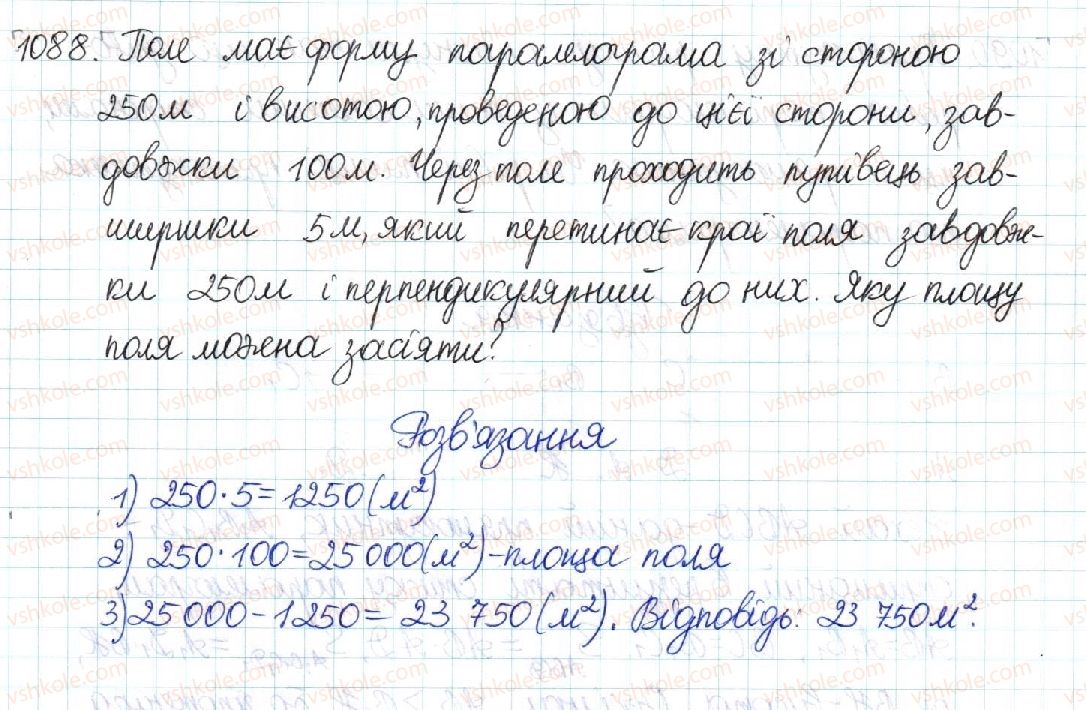 1088. Поле має форму паралелограма зі стороною
250м і висотою, проведеною до цієї сторони, зав-
довжки 100м. Через поле проходить путівець зав-
ширшки 5м, який перетинає краї поля завдовж-
ки 250м і перпендикулярний до них. Яку площу
поля можна засіяти?
Розв'язання
1) 250·5=1250(м²)
2) 250·100=25000(м²)-площа поля
3) 25000-1250=23 750(м²). Відповідь: 23 750м².
vshkole.com